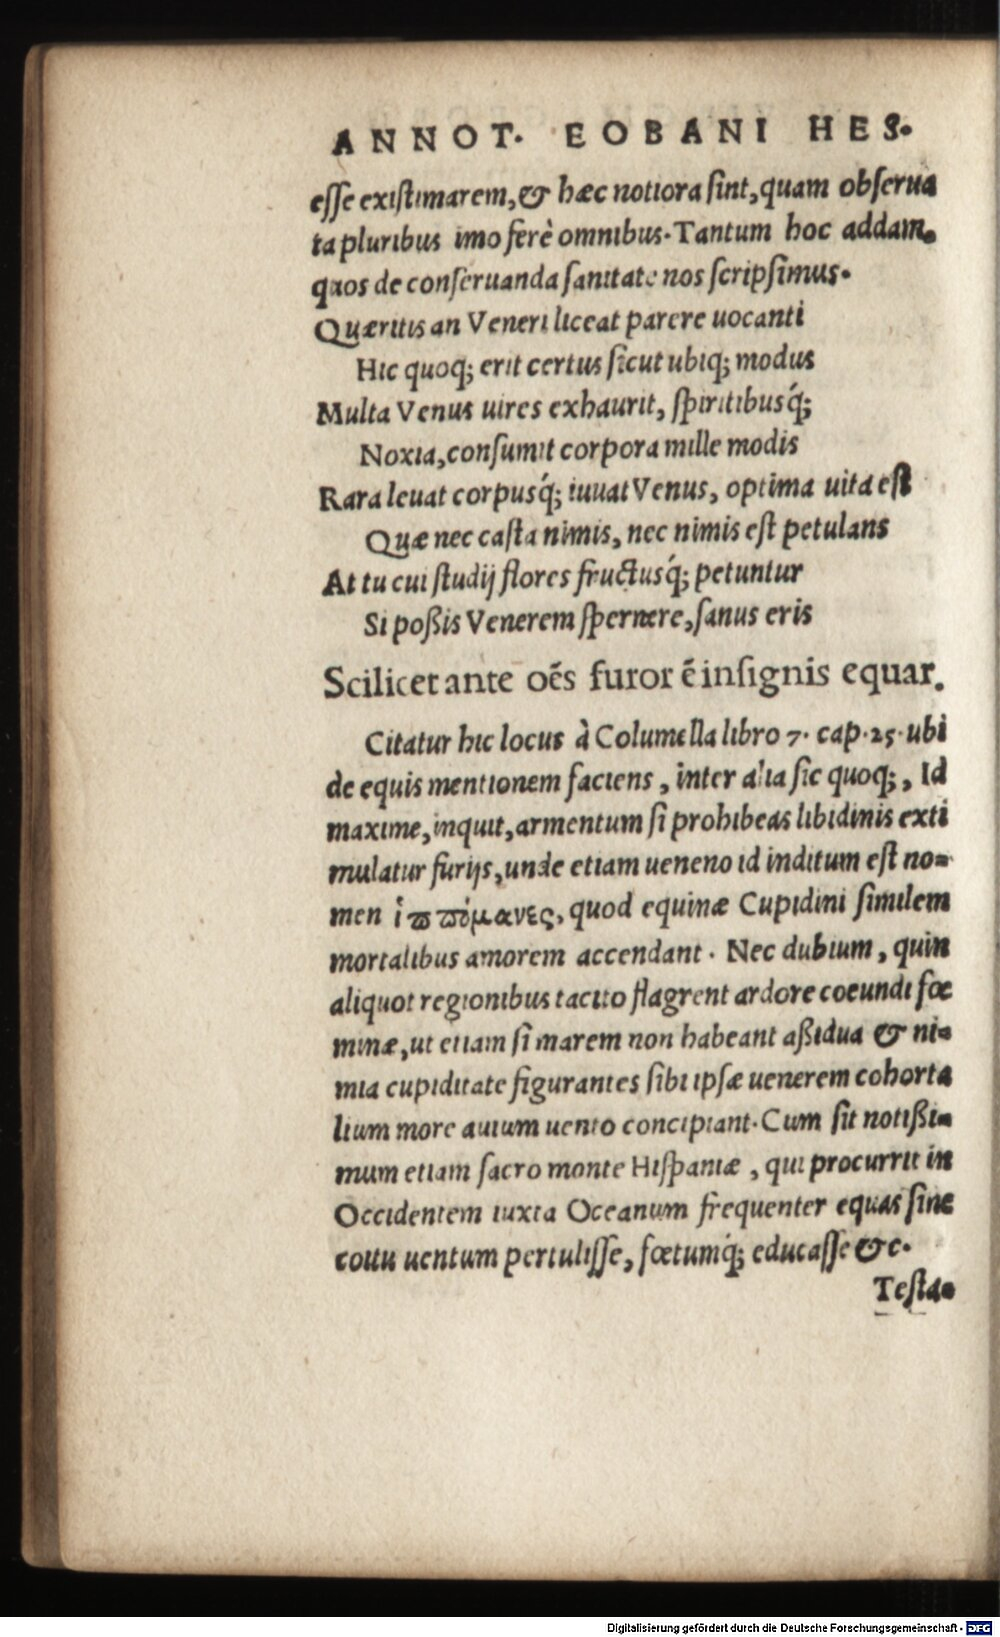 ANNOT. EOBANI HES.
esse existimarem, & hæc notiora sint, quam obserua
ta pluribus imo ferè omnibus. Tantum hoc addam.
quos de conseruanda sanitate nos scripsimus.
Quæritis an Veneri liceat parere uocanti
Hic quoq; erit certus sicut ubiq; modus
Multa Venus uires exhaurit, spiritibusq́;
Noxia, consumit corpora mille modis
Rara leuat corpusq́; iuuat Venus, optima uita est
Quæ nec casta nimis, nec nimis est petulans
At tu cui studij flores fructusq́; petuntur
Si poßis Venerem spernere, sanus eris
Scilicet ante oẽs furor ẽ insignis equar.
Citatur hic locus à Columella libro 7. cap. 25. ubi
de equis mentionem faciens, inter alia sic quoq;, Id
maxime, inquit, armentum si prohibeas libidinis exti
mulatur furijs, unde etiam ueneno id inditum est no=
men ἱππόμανες, quod equinæ Cupidini similem
mortalibus amorem accendant. Nec dubium, quin
aliquot regionibus tacito flagrent ardore coeundi fœ
minæ, ut etiam si marem non habeant aßidua & ni=
mia cupiditate figurantes sibi ipsæ uenerem cohorta
lium more auium uento concipiant. Cum sit notißi=
mum etiam sacro monte Hispaniæ, qui procurrit in
Occidentem iuxta Oceanum frequenter equas sine
coitu uentum pertulisse, fœtumq́; educasse &c.
Testa=
Digitalisierung gefördert durch die Deutsche Forschungsgemeinschaft - DFG